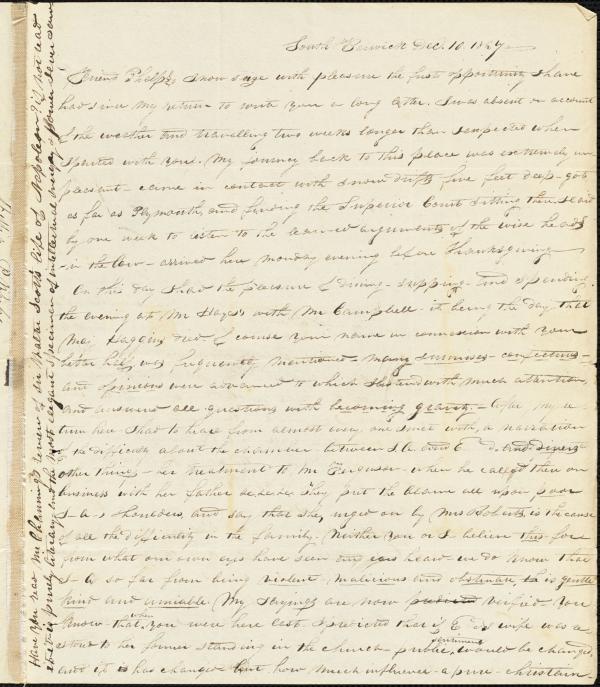 South Berwick Dec. 10. 1827
Friend Phelps, I now seize with pleasure the first opportunity I have
had since my return to write you a long letter. I was absent on account
of the weather and travelling two weeks longer than I expected when
I parted with you. My journey back to this place was extremely un
pleasant - came in contact with snow drifts five feet deep - got
as far as Plymouth, and finding the Superior Court sitting there staid
by one week to listen to the learned arguments of the wise heads
in the law - arrived here Monday evening before Thanksgiving
On this day I had the pleasure of dining - supping - and spending
the evening at Mr Hayes's with Mr Campbell - it being the day that
died Of course your name in connexion with your
better half was frequently mentioned - many surmises - conjectures -
and opinions were advanced to which I listened with much attention
and answered all questions with becoming gravity. - After my re-
turn here I had to hear from almost every one I met with, a narration
of the difficulty about the chamber between S. A. and E and divers
other things - her treatment to Mr Ferguson when he called there on
business with her father &c &c &c They put the blame all upon poor
S - A - s shoulders, and say that she, urged on by Mrs Roberts is the cause
of all the difficulty in the family. Neither you or I believe this - for
from what our own eyes have seen and ears heard we do know that
S - A so far from being violent, malicious and obstinate, is gentle
kind and amiable. My sayings are now verified. You
know that when you were here last I predicted that if E wife was re-
stored to her former standing in the church public sentiment would be changed,
and it is has changed but how much influence a pure christain
Have you read Mr Channing's review of Sir Walter Scott's life of Napoleon? if not read
it - it is purely literary and the most elegant specimen of intellectual vigor & power I ever saw